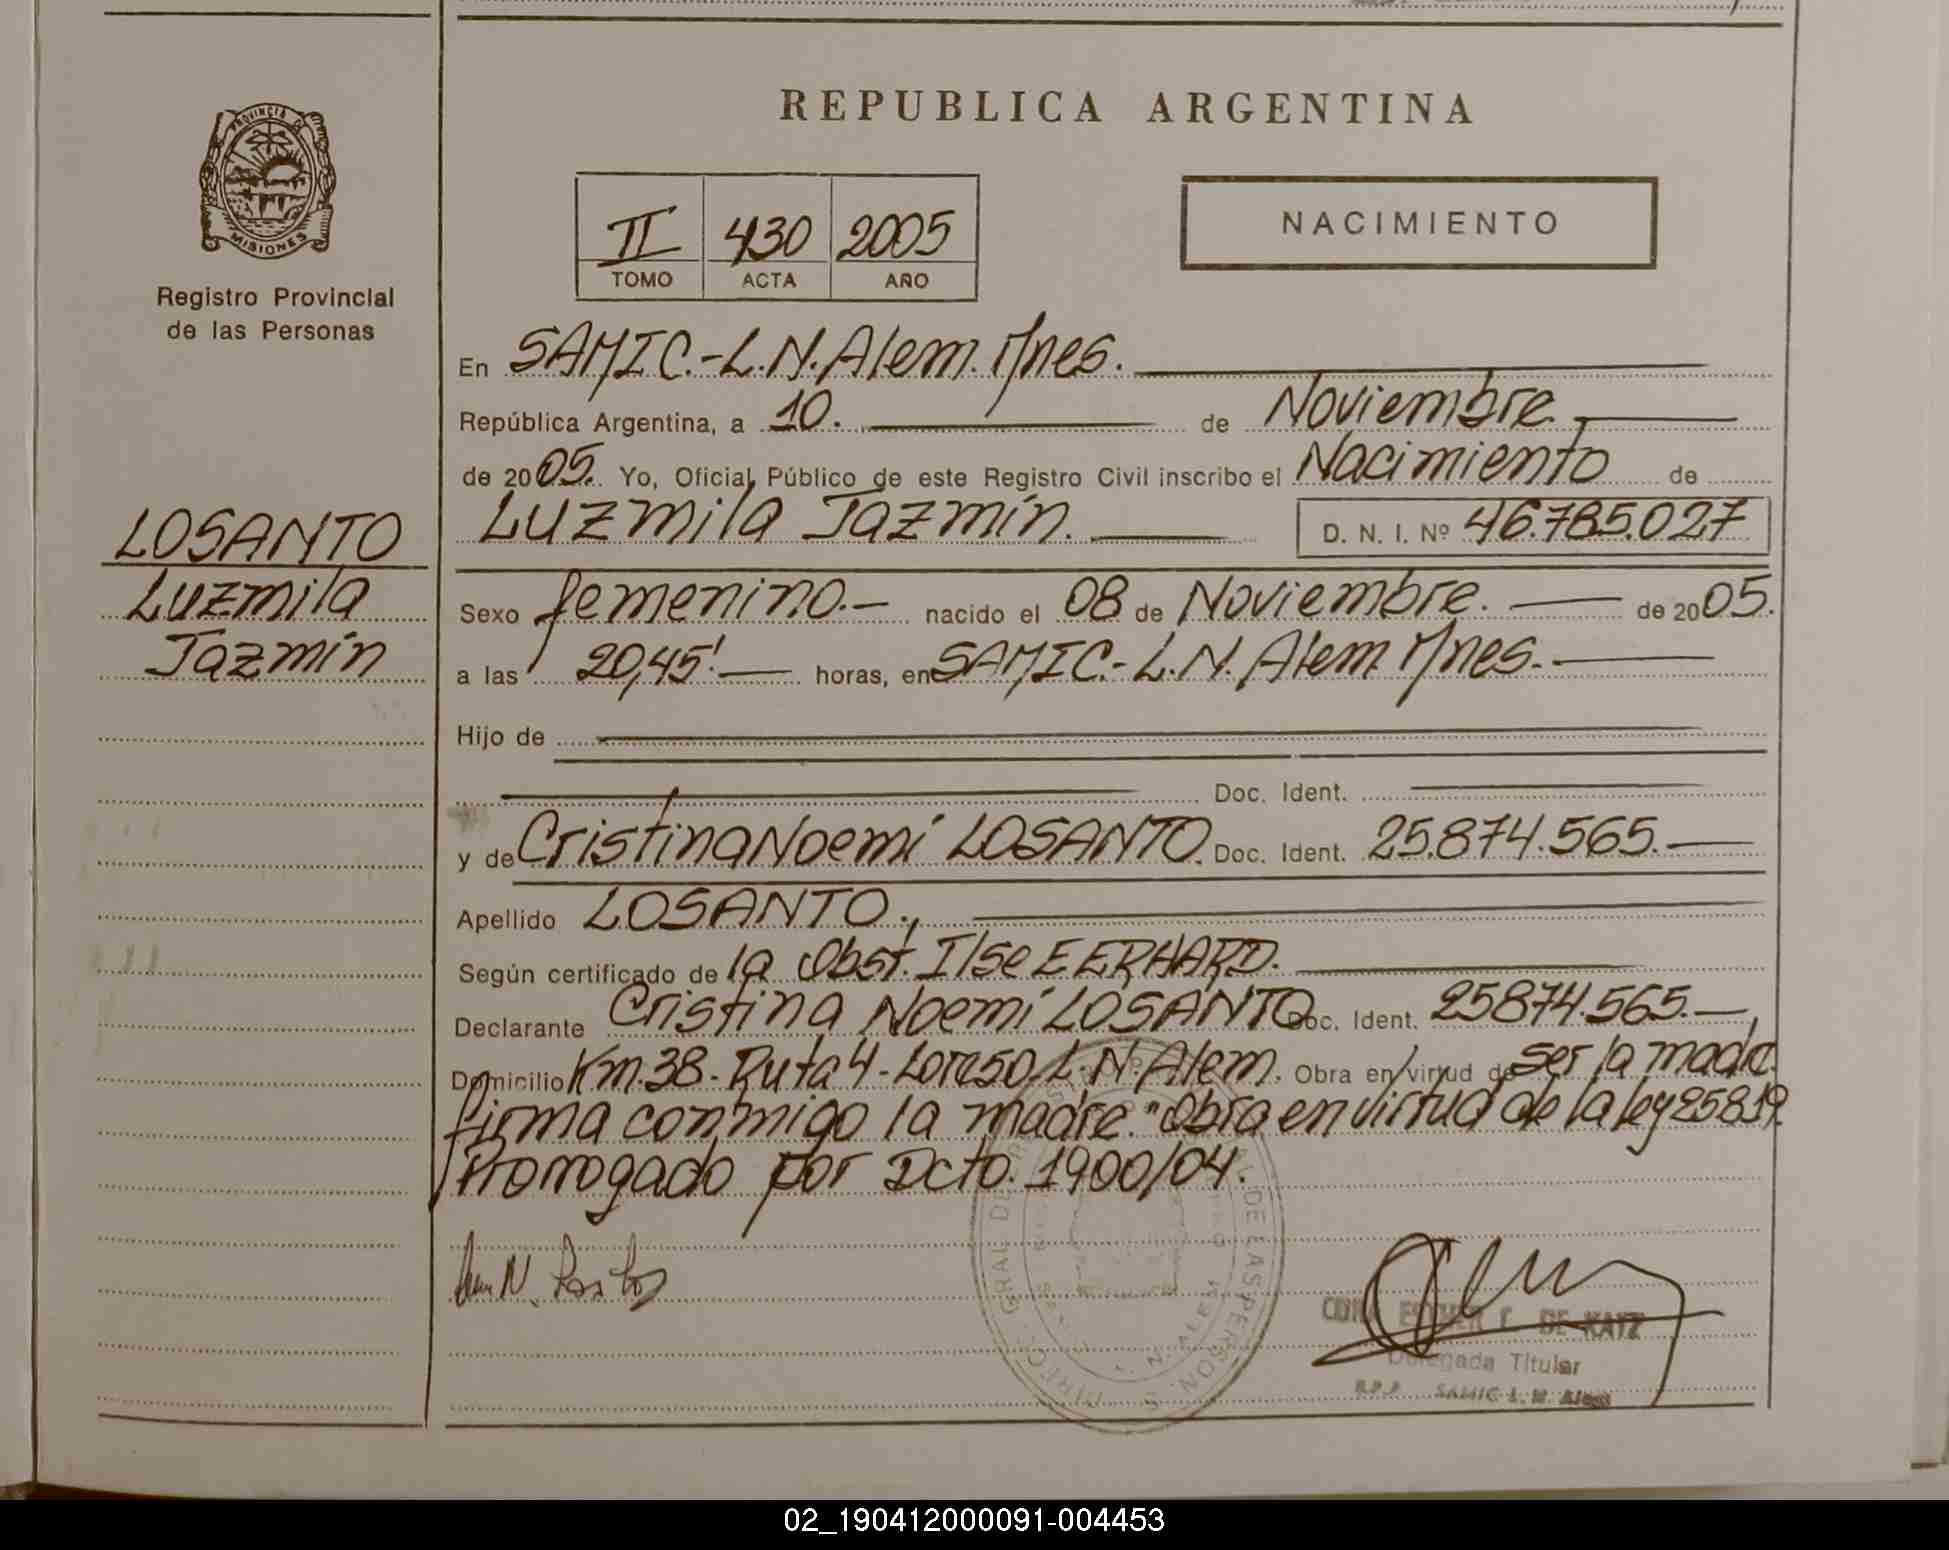 REPUBLICA ARGENTINA
PROVINCIA D
MISIONES
Registro Provincial
de las Personas
II 430 2005
TOMO ACTA AÑO
NACIMIENTO
En SAMIC.-L.N.Alem. Mnes.
República Argentina, a 10. de Noviembre
de 2005. Yo, Oficial Público de este Registro Civil inscribo el Nacimiento de
Luzmila Jazmín. D. N. I. Nº 46.785.027
LOSANTO
Luzmila
Jazmín
Sexo femenino.- nacido el 08 de Noviembre. de 2005.
a las 20,45' horas, en SAMIC.-L.N. Alem. Mnes.
Hijo de
Doc. Ident.
y de Cristina Noemí LOSANTO. Doc. Ident. 25.874.565.
Apellido LOSANTO.,
Según certificado de la Obst. Ilse E ERHARD.
Declarante Cristina Noemí LOSANTO Doc. Ident. 25874.565.
Domicilio Km.38-Ruta 4-Loreso, L.N. Alem. Obra en virtud de ser la madre.
firma conmigo la madre. "Obra en virtud de la ley 25819.
Prorrogado por Dcto. 1900/04.
ESTHER DE KATZ
Delegada Titular
R.P.P. SAMIC L. N. Alem
02_190412000091-004453